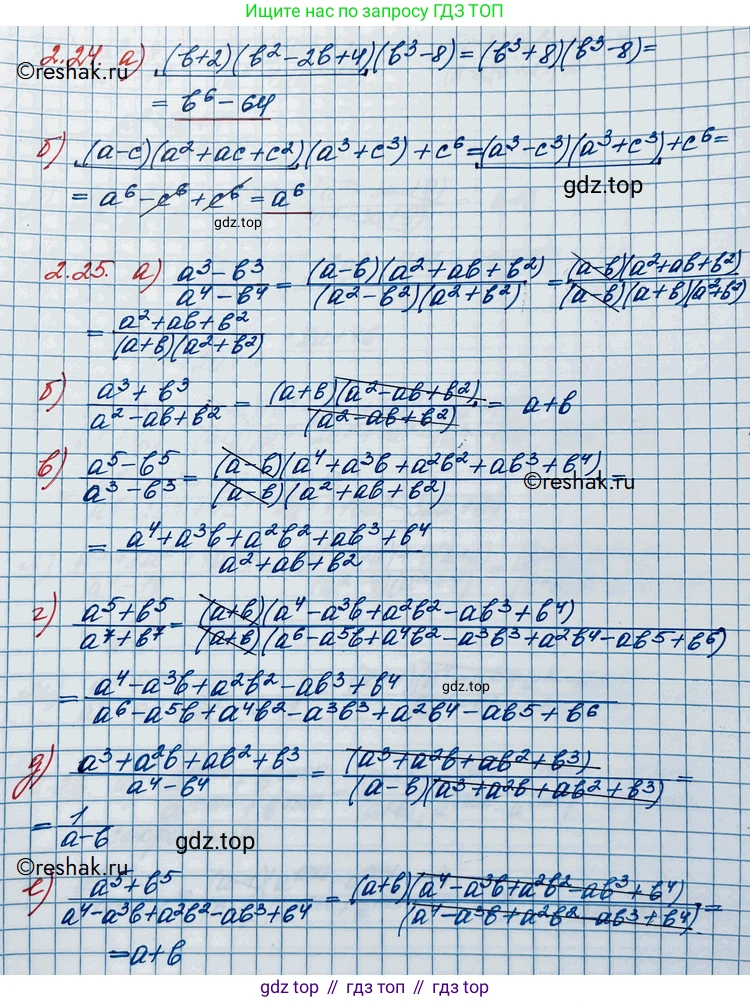 больше решений по запросу ГДЗ ТОП
2.24. а) (b+2)(b²-2b+4)(b³-8)=(b³+8)(b³-8)=
©reshak.ru
= b⁶-64
б) (a-c)(a²+ac+c²)(a³+c³)+c⁶=(a³-c³)(a³+c³)+c⁶=
= a⁶-c⁶+c⁶=a⁶
gdz.top
gdz.top
2.25. а) (a³-b³)/(a⁴-b⁴) = ((a-b)(a²+ab+b²))/((a²-b²)(a²+b²)) = ((a-b)(a²+ab+b²))/((a-b)(a+b)(a²+b²))
= (a²+ab+b²)/((a+b)(a²+b²))
б) (a³+b³)/(a²-ab+b²) = ((a+b)(a²-ab+b²))/((a²-ab+b²)) = a+b
в) (a⁵-b⁵)/(a³-b³) = ((a-b)(a⁴+a³b+a²b²+ab³+b⁴))/((a-b)(a²+ab+b²)) =
©reshak.ru
= (a⁴+a³b+a²b²+ab³+b⁴)/(a²+ab+b²)
г) (a⁵+b⁵)/(a⁷+b⁷) = ((a+b)(a⁴-a³b+a²b²-ab³+b⁴))/((a+b)(a⁶-a⁵b+a⁴b²-a³b³+a²b⁴-ab⁵+b⁶))
= (a⁴-a³b+a²b²-ab³+b⁴)/(a⁶-a⁵b+a⁴b²-a³b³+a²b⁴-ab⁵+b⁶)
gdz.top
д) (a³+a²b+ab²+b³)/(a⁴-b⁴) = ((a³+a²b+ab²+b³))/((a-b)(a³+a²b+ab²+b³)) =
= 1/(a-b)
gdz.top
©reshak.ru
е) (a⁵+b⁵)/(a⁴-a³b+a²b²-ab³+b⁴) = ((a+b)(a⁴-a³b+a²b²-ab³+b⁴))/((a⁴-a³b+a²b²-ab³+b⁴)) =
=a+b
gdz.top // гдз топ // gdz.top